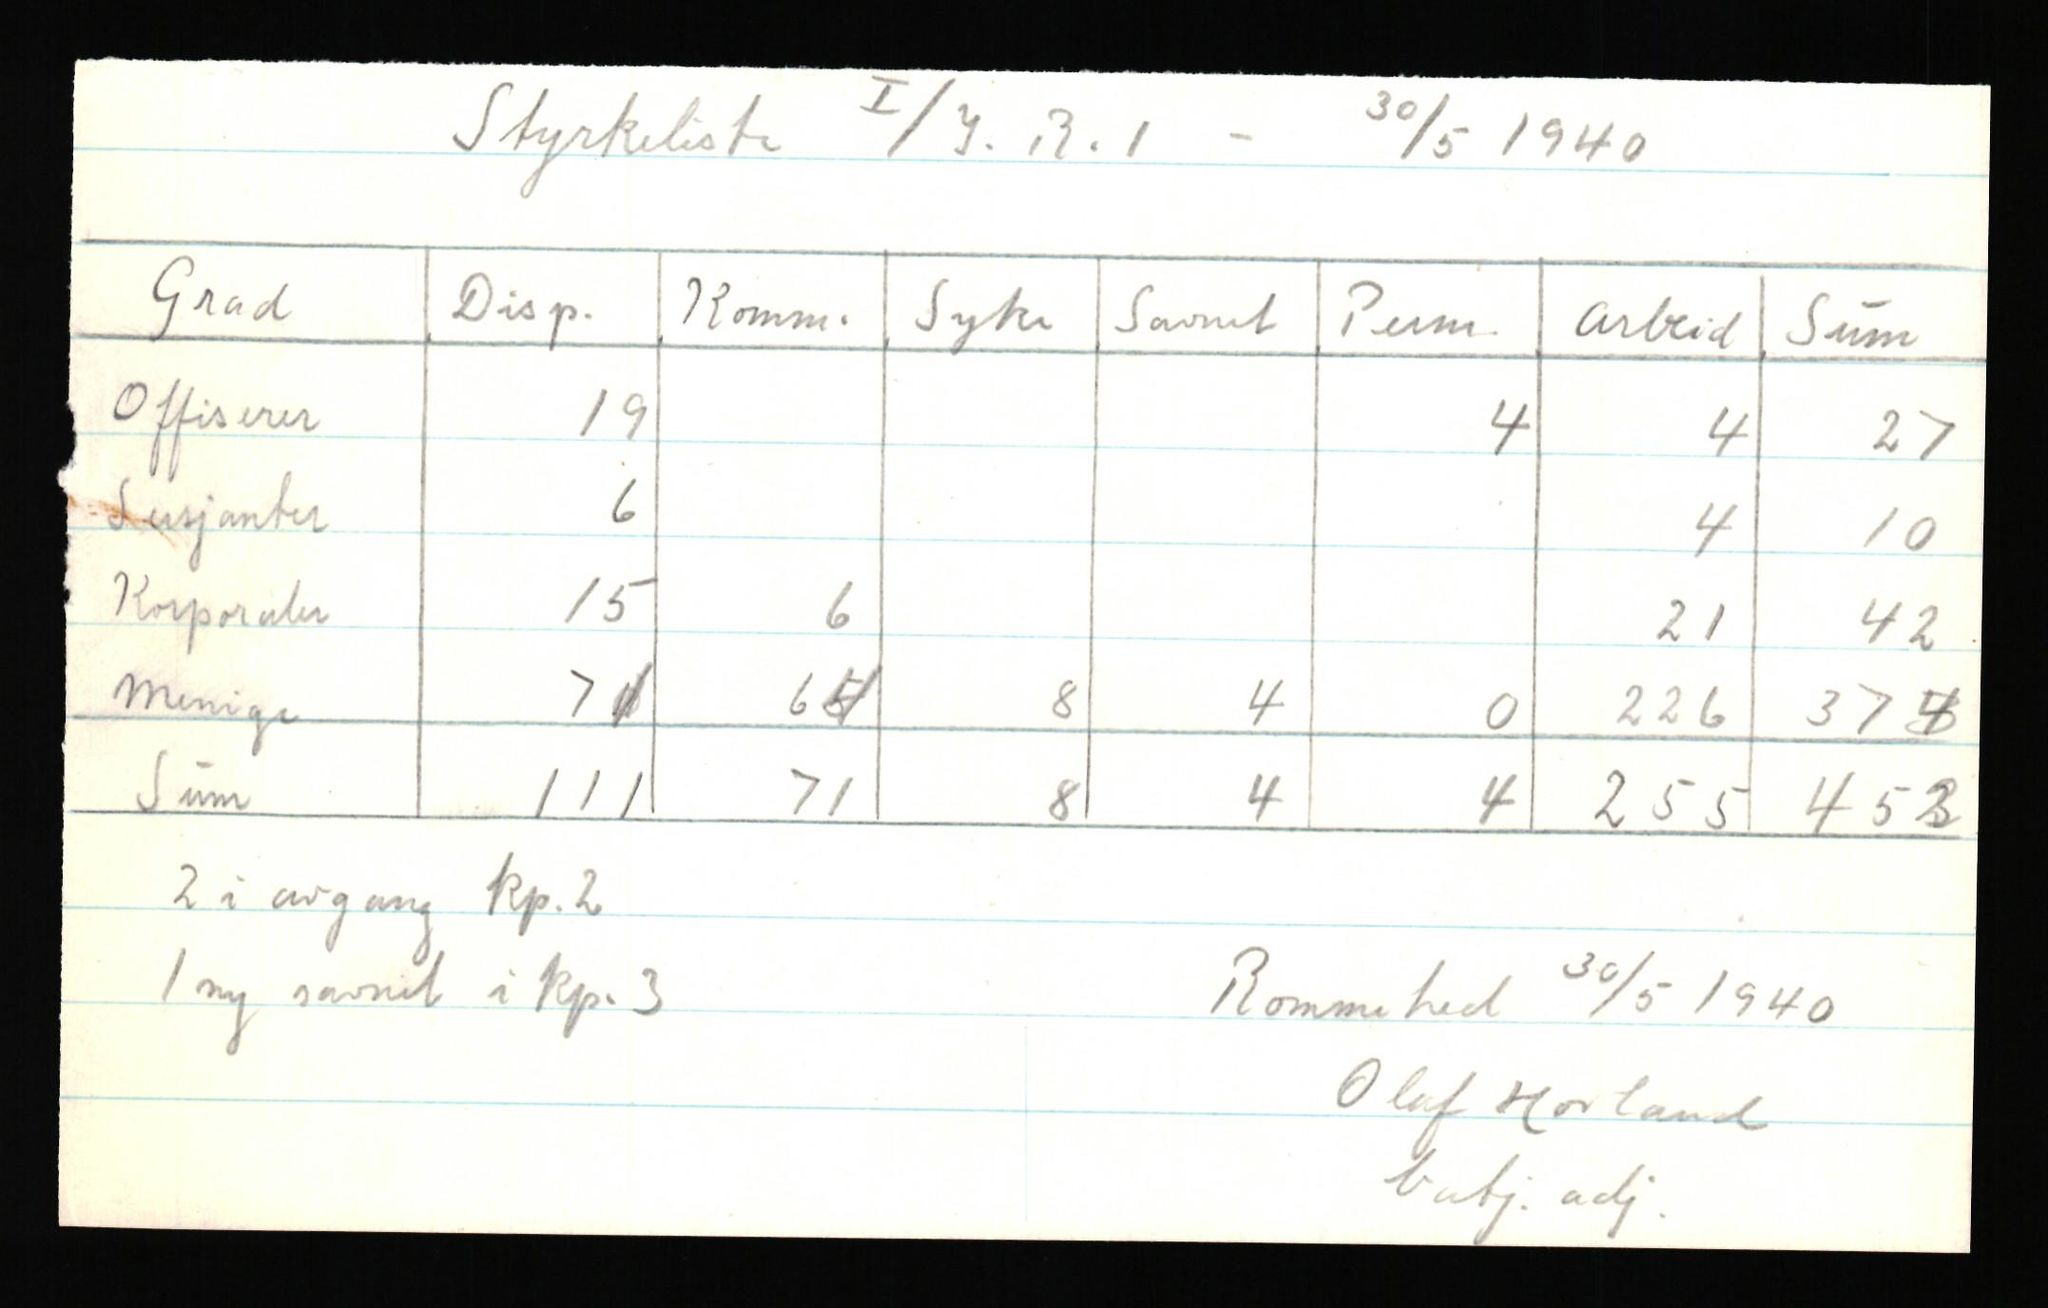 Styrkeliste I/I.R.1 - 30/5 1940
Grad Disp. Komm. Syke Savnet Perm. Arbeid Sum
Offiserer 19 4 4 27
Sersjanter 6 4 10
Korporaler 15 6 21 42
Menige 71 65 8 4 0 226 374
Sum 111 71 8 4 4 255 453
2 i avgang kp. 2
1 ny savnet i kp. 3
Rommehed 30/5 1940
Olaf Horland
batj. adj.